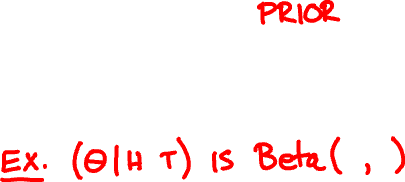 PRIOR
Ex. (θ|H T) IS Beta( , )